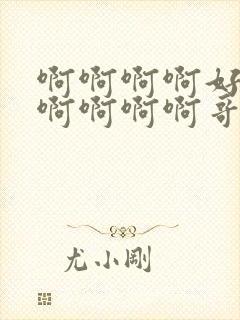 啊啊啊啊好
啊啊啊啊哥
尤小刚